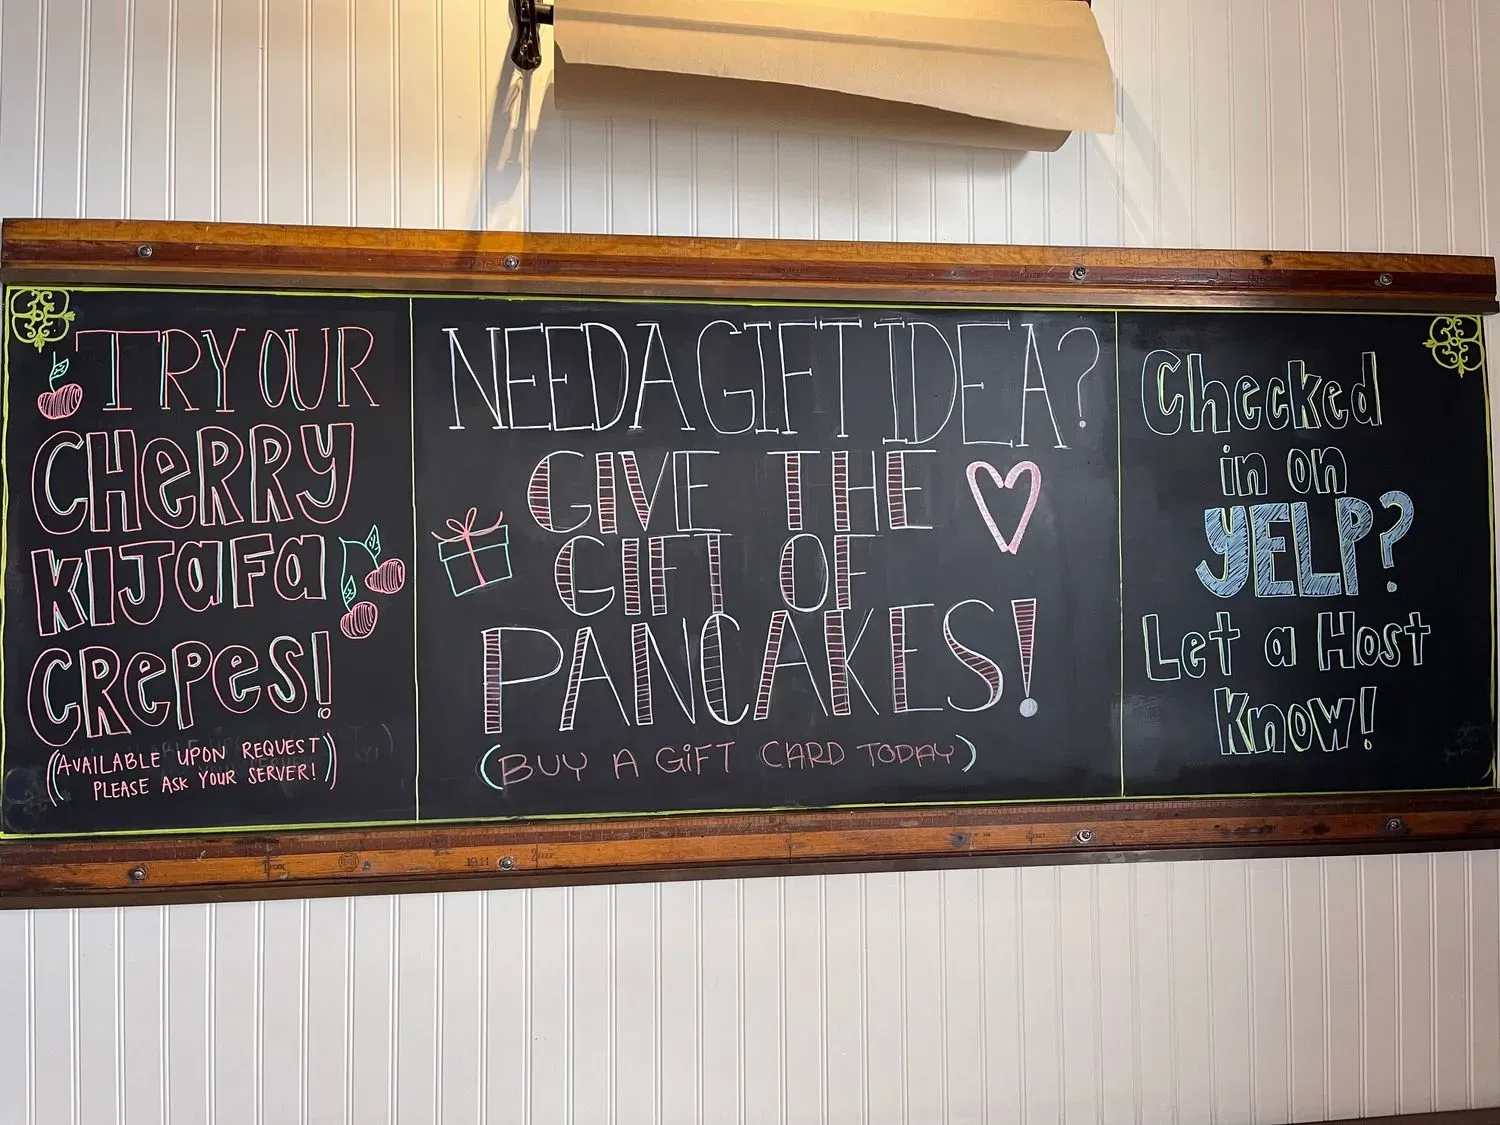 TRY OUR
CHeRRY
KIJaFa
CRePeS!
(AVAILABLE UPON REQUEST
PLEASE ASK YOUR SERVER!)
NEED A GIFT IDEA?
GIVE THE
GIFT OF
PANCAKES!
(BUY A GiFT CARD TODAY)
Checked
in on
YELP?
Let a Host
Know!
1941
2
4